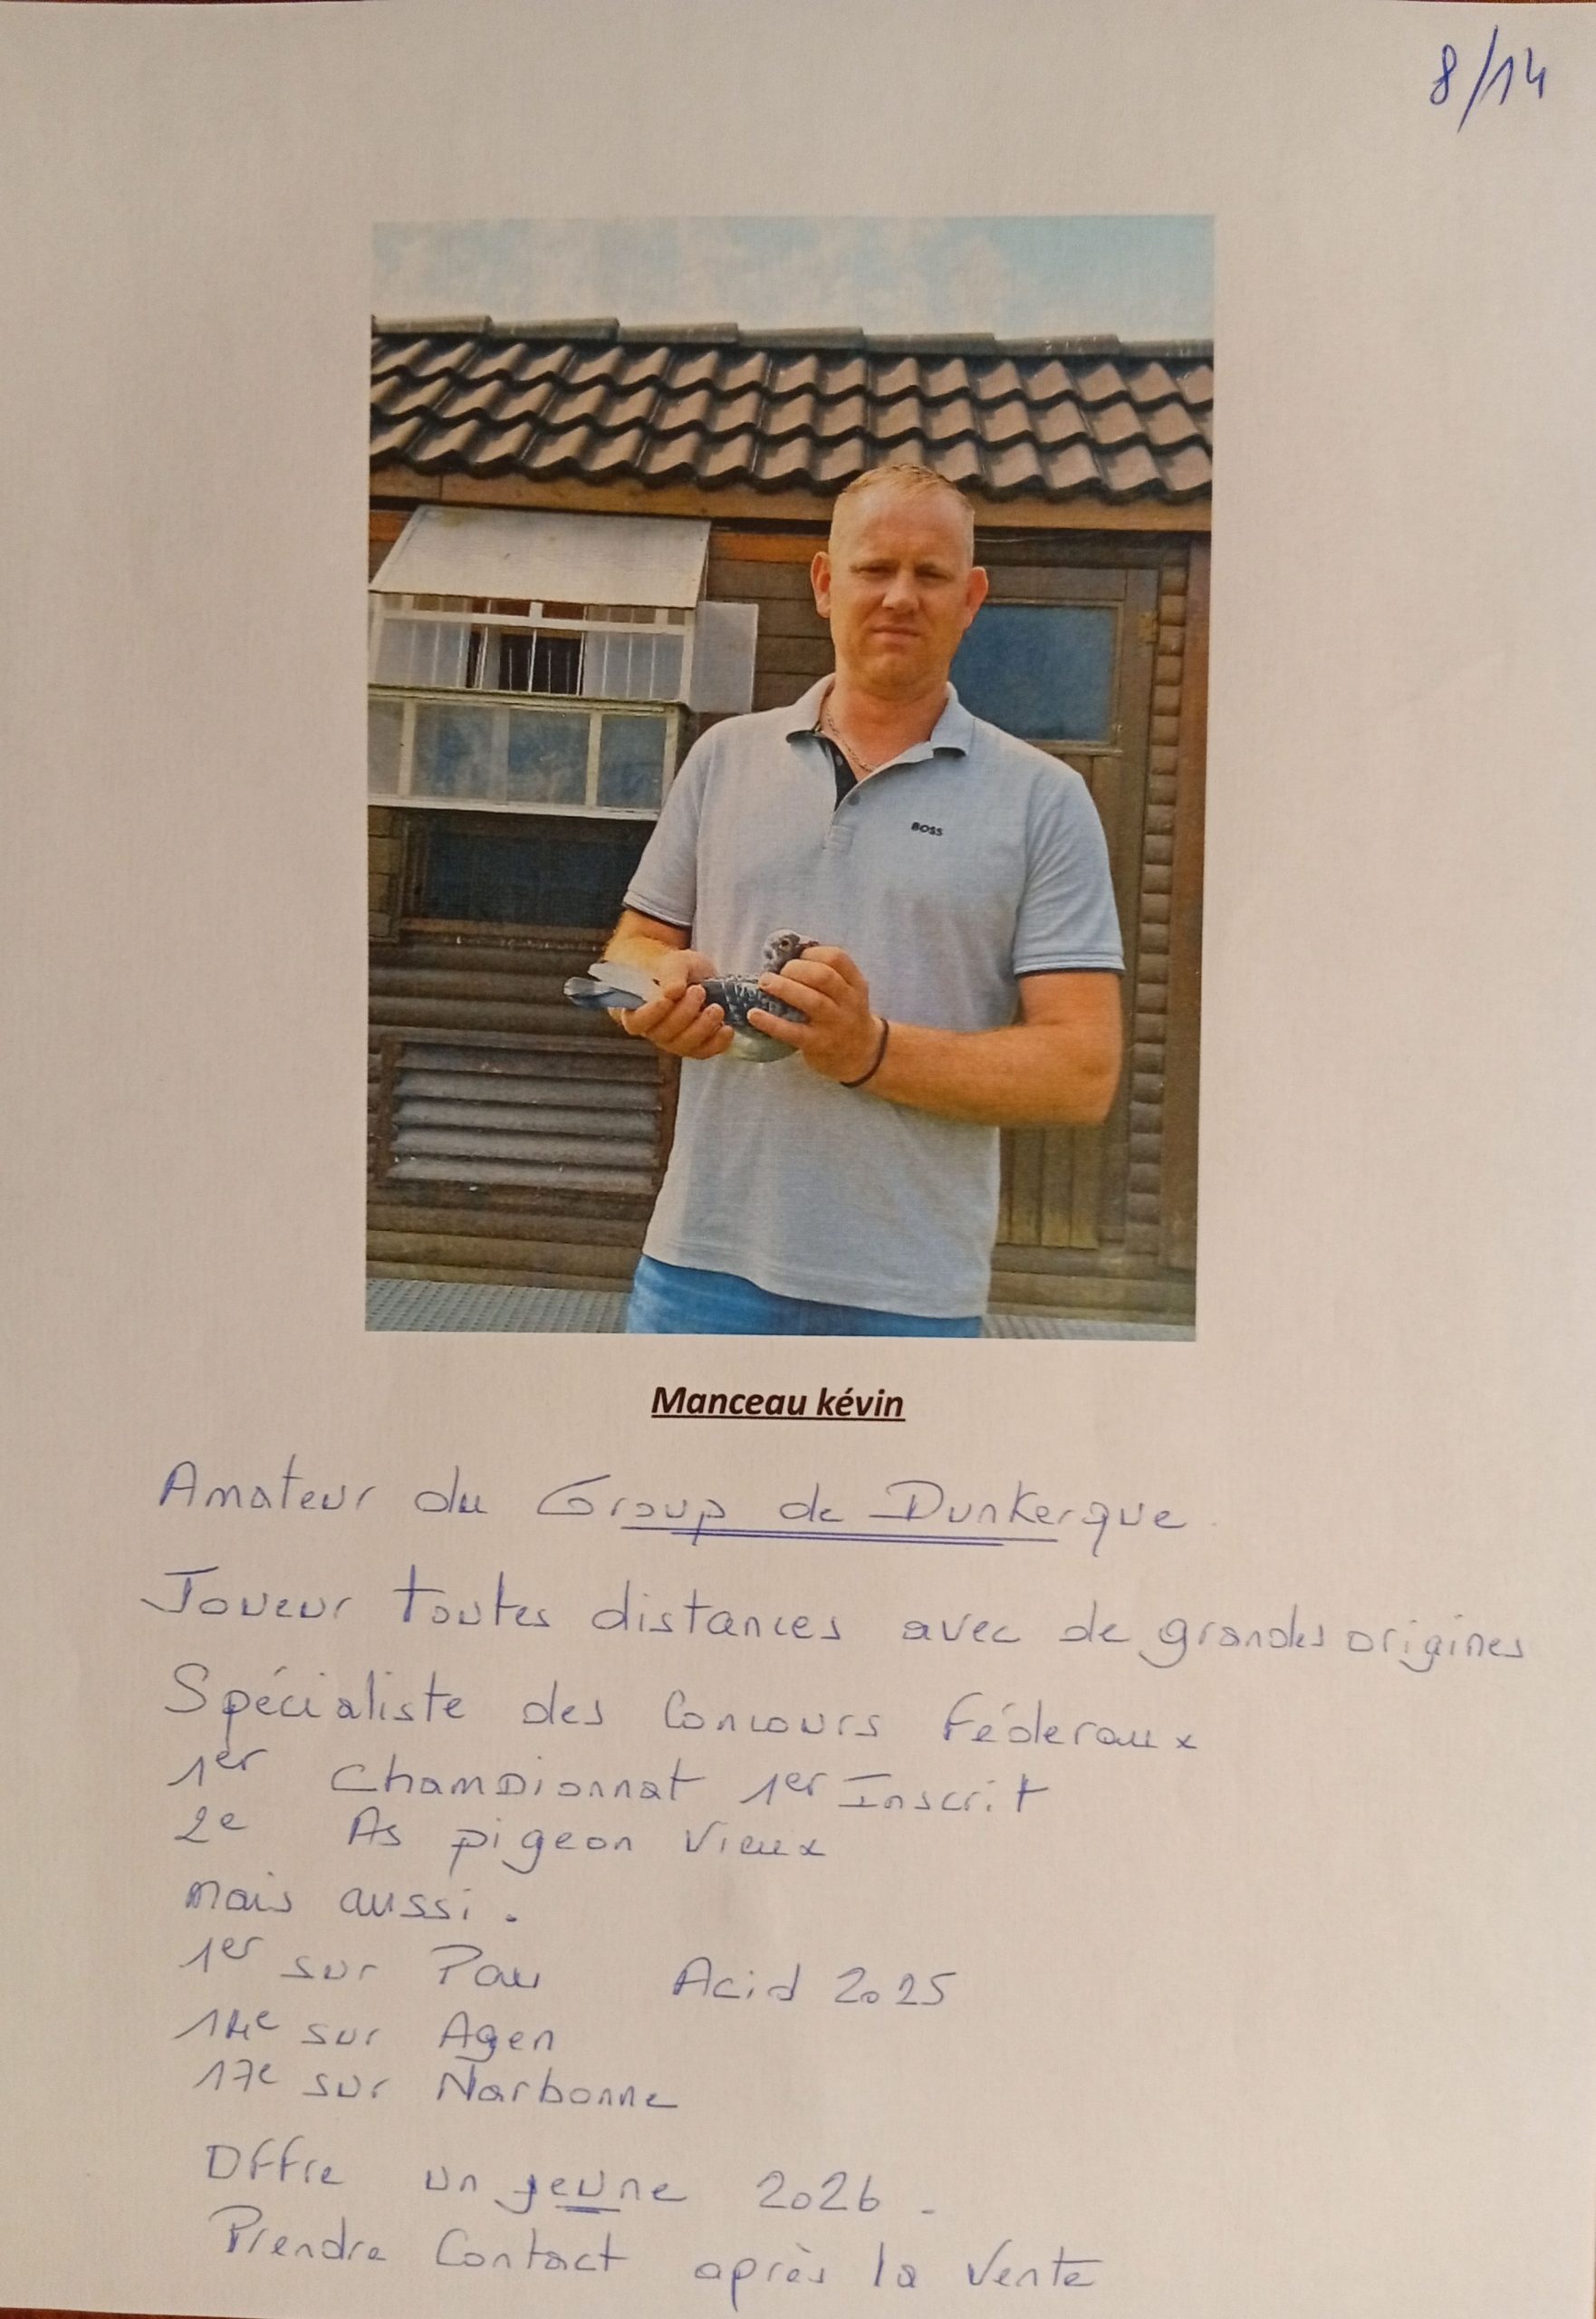 8/14
BOSS
Manceau kévin
Amateur du Group de Dunkerque.
Joueur toutes distances avec de grandes origines
Spécialiste des Concours Féderaux
1er Championnat 1er Inscrit
2e As pigeon Vieux
mais aussi.
1er sur Pau Acid 2025
14e sur Agen
17e sur Narbonne
Offre un jeune 2026.
Prendre Contact après la Vente